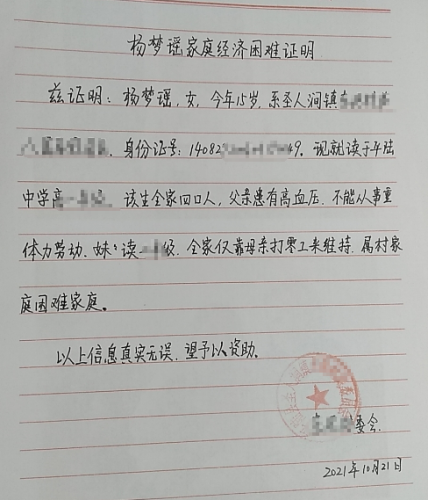 杨梦瑶家庭经济困难证明
兹证明：杨梦瑶，女，今年15岁，系圣人涧镇
，身份证号：14082 49。现就读于平陆
中学高 。该生全家四口人，父亲患有高血压，不能从事重
体力劳动、妹妹读 级，全家仅靠母亲打零工来维持，属村家
庭困难家庭。
以上信息真实无误，望予以资助。
委会
2021年10月21日